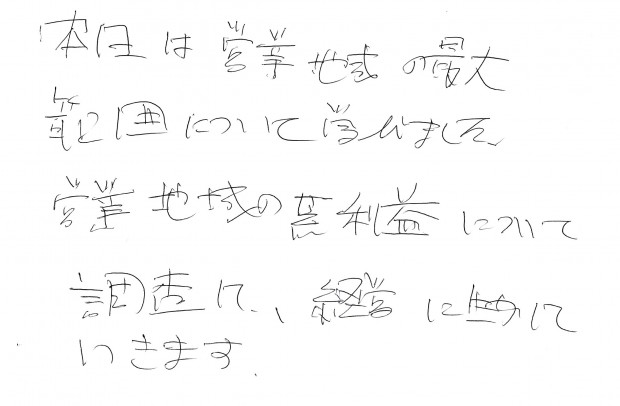 本日は営業地域の最大
範囲について学びました
営業地域の 利益について
調査し、経営に
いきます.